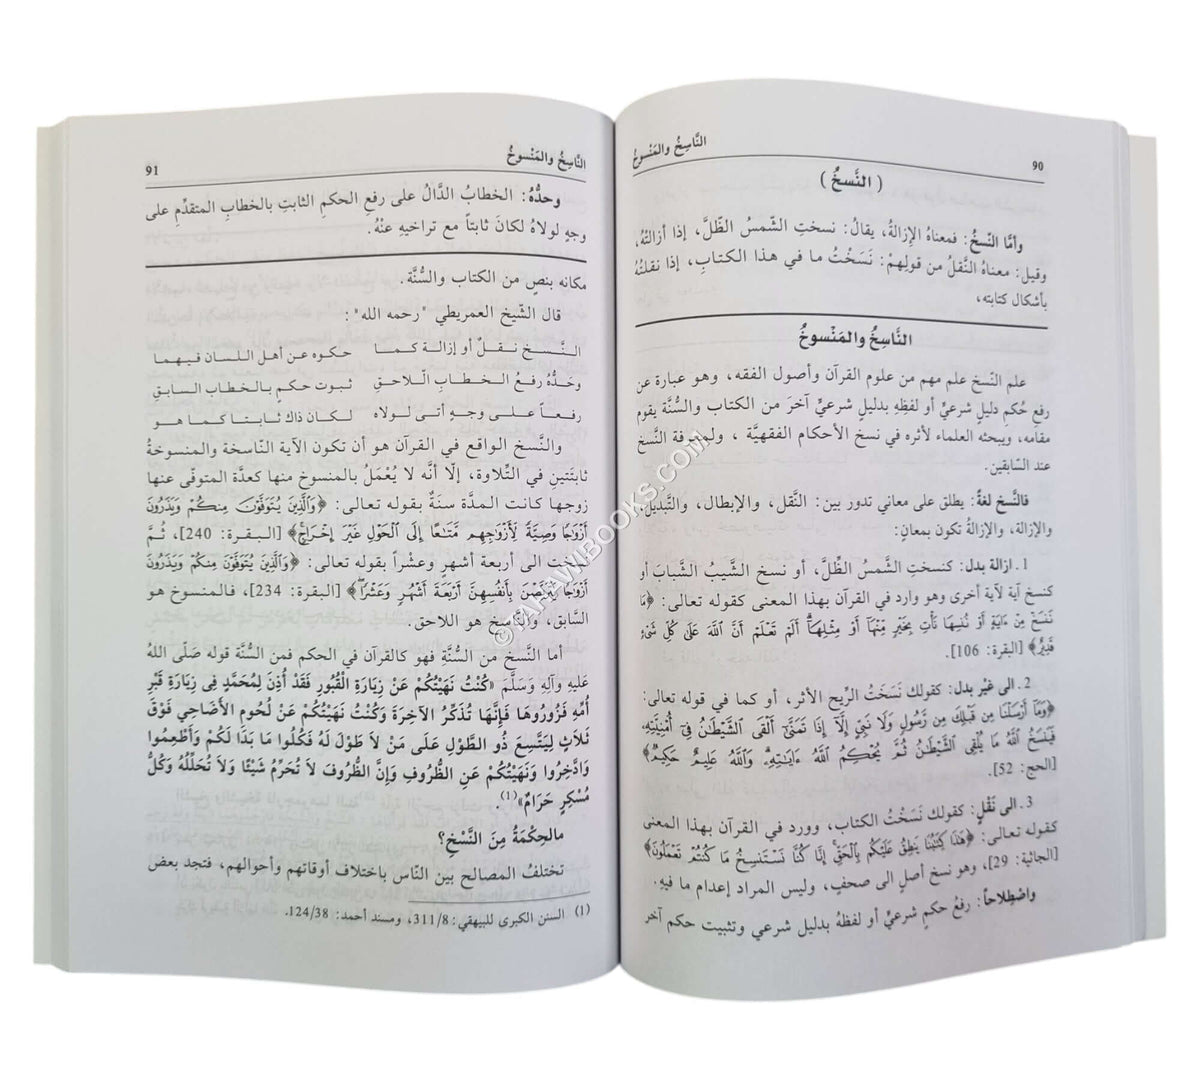 90
النَّاسِخُ والمَنْسوخُ
( النَّسخُ )
وأمَّا النّسخُ: فمعناهُ الإزالةُ، يقالُ: نسختِ الشّمسُ الظّلَّ، إذا أزالتْهُ،
وقيل: معناهُ النَّقلُ من قولهِمْ: نَسَخْتُ ما في هذا الكتابِ، إذا نقلتُهُ
بأشكال كتابته،
النَّاسِخُ والمَنْسوخُ
علم النّسخ علم مهم من علوم القرآن وأصول الفقه، وهو عبارة عن
رفع حُكمِ دليلٍ شرعيٍّ أو لفظِهِ بدليلٍ شرعيٍّ آخرَ من الكتاب والسُّنة يقوم
مقامه، ويبحثه العلماء لأثره في نسخ الأحكام الفقهيَّة ، ولمعرفة النَّسخ
عند السّابقين.
فالنَّسخ لغةً: يطلق على معاني تدور بين: النَّقل، والإبطال، والتَّبديل،
والإزالة، والإزالةُ تكون بمعانٍ:
1. ازالة بدل: كنسختِ الشَّمسُ الظِّلَّ، أو نسخ الشَّيبُ الشَّبابَ أو
كنسخ آية لآية أخرى وهو وارد في القرآن بهذا المعنى كقوله تعالى: ﴿مَا
نَنسَخْ مِنْ ءَايَةٍ أَوْ نُنسِهَا نَأْتِ بِخَيْرٍ مِّنْهَا أَوْ مِثْلِهَآ أَلَمْ تَعْلَمْ أَنَّ اللَّهَ عَلَىٰ كُلِّ شَىْءٍ
قَدِيرٌ﴾ [البقرة: 106].
2. الى غَيْر بدل: كقولك نَسَخَتُ الرِّيح الأثر، أو كما في قوله تعالى:
﴿وَمَآ أَرْسَلْنَا مِن قَبْلِكَ مِن رَّسُولٍ وَلَا نَبِىٍّ إِلَّآ إِذَا تَمَنَّىٰٓ أَلْقَى الشَّيْطَٰنُ فِىٓ أُمْنِيَّتِهِۦ
فَيَنسَخُ اللَّهُ مَا يُلْقِى الشَّيْطَٰنُ ثُمَّ يُحْكِمُ اللَّهُ ءَايَٰتِهِۦ وَاللَّهُ عَلِيمٌ حَكِيمٌ﴾
[الحج: 52].
3. الى نَقْلٍ: كقولك نَسَخْتُ الكتاب، وورد في القرآن بهذا المعنى
كقوله تعالى: ﴿هَٰذَا كِتَٰبُنَا يَنطِقُ عَلَيْكُم بِالْحَقِّ إِنَّا كُنَّا نَسْتَنسِخُ مَا كُنتُمْ تَعْمَلُونَ﴾
[الجاثية: 29]، وهو نسخ أصلٍ الى صحفٍ، وليس المراد إعدام ما فيهِ.
واصْطِلاحاً: رفعُ حكمٍ شرعيٍّ أو لفظهُ بدليل شرعي وتثبيت حكم آخر
91
النَّاسِخُ والمَنْسوخُ
وحدُّهُ: الخطابُ الدَّالُ على رفعِ الحكمِ الثابتِ بالخطابِ المتقدِّمِ على
وجهٍ لولاهُ لكانَ ثابتاً مع تراخيهِ عنْهُ.
مكانه بنصٍ من الكتاب والسُّنَّة.
قال الشَّيخ العمريطي "رحمه الله":
النَّسـخ نقـلٌ أو إزالة كمـا حكوه عن أهل اللسان فيهما
وحَدُّه رفعُ الخطابِ الـلّاحقِ ثبوت حكمٍ بالخطاب السابقِ
رفعـاً علـى وجهٍ أتى لـولاه لكـان ذاك ثابتـا كمـا هـو
والنَّسخ الواقع في القرآن هو أن تكون الآية النّاسخة والمنسوخةُ
ثابتَتينِ في التِّلاوة، إلّا أنَّه لا يُعْمَلُ بالمنسوخ منها كعدَّة المتوفّى عنها
زوجها كانت المدّة سنةٌ بقوله تعالى: ﴿وَالَّذِينَ يُتَوَفَّوْنَ مِنكُمْ وَيَذَرُونَ
أَزْوَٰجًا وَصِيَّةً لِّأَزْوَٰجِهِم مَّتَٰعًا إِلَى الْحَوْلِ غَيْرَ إِخْرَاجٍ﴾ [البقرة: 240]، ثُمَّ
الى أربعة أشهرٍ وعشْراً بقوله تعالى: ﴿وَالَّذِينَ يُتَوَفَّوْنَ مِنكُمْ وَيَذَرُونَ
أَزْوَٰجًا يَتَرَبَّصْنَ بِأَنفُسِهِنَّ أَرْبَعَةَ أَشْهُرٍ وَعَشْرًا﴾ [البقرة: 234]، فالمنسوخ هو
السّابق، والنَّاسخ هو اللاحق.
أما النَّسخ من السُّنَّةِ فهو كالقرآن في الحكم فمن السُّنَّة قوله صَلّى اللهُ
عَليهِ وآلِهِ وَسَلَّمَ «كُنْتُ نَهَيْتُكُمْ عَنْ زِيَارَةِ الْقُبُورِ فَقَدْ أُذِنَ لِمُحَمَّدٍ فِى زِيَارَةِ قَبْرِ
أُمِّهِ فَزُورُوهَا فَإِنَّهَا تُذَكِّرُ الآخِرَةَ وَكُنْتُ نَهَيْتُكُمْ عَنْ لُحُومِ الأَضَاحِي فَوْقَ
ثَلَاثٍ لِيَتَّسِعَ ذُو الطَّوْلِ عَلَى مَنْ لاَ طَوْلَ لَهُ فَكُلُوا مَا بَدَا لَكُمْ وَأَطْعِمُوا
وَادَّخِرُوا وَنَهَيْتُكُمْ عَنِ الظُّرُوفِ وَإِنَّ الظُّرُوفَ لاَ تُحَرِّمُ شَيْئًا وَلاَ تُحَلِّلُهُ وَكُلُّ
مُسْكِرٍ حَرَامٌ»(1).
مالحِكْمَةُ مِنَ النَّسْخِ؟
تختلفُ المصالح بين النّاس باختلاف أوقاتهم وأحوالهم، فتجد بعض
(1) السنن الكبرى للبيهقي: 311/8، ومسند أحمد: 124/38.